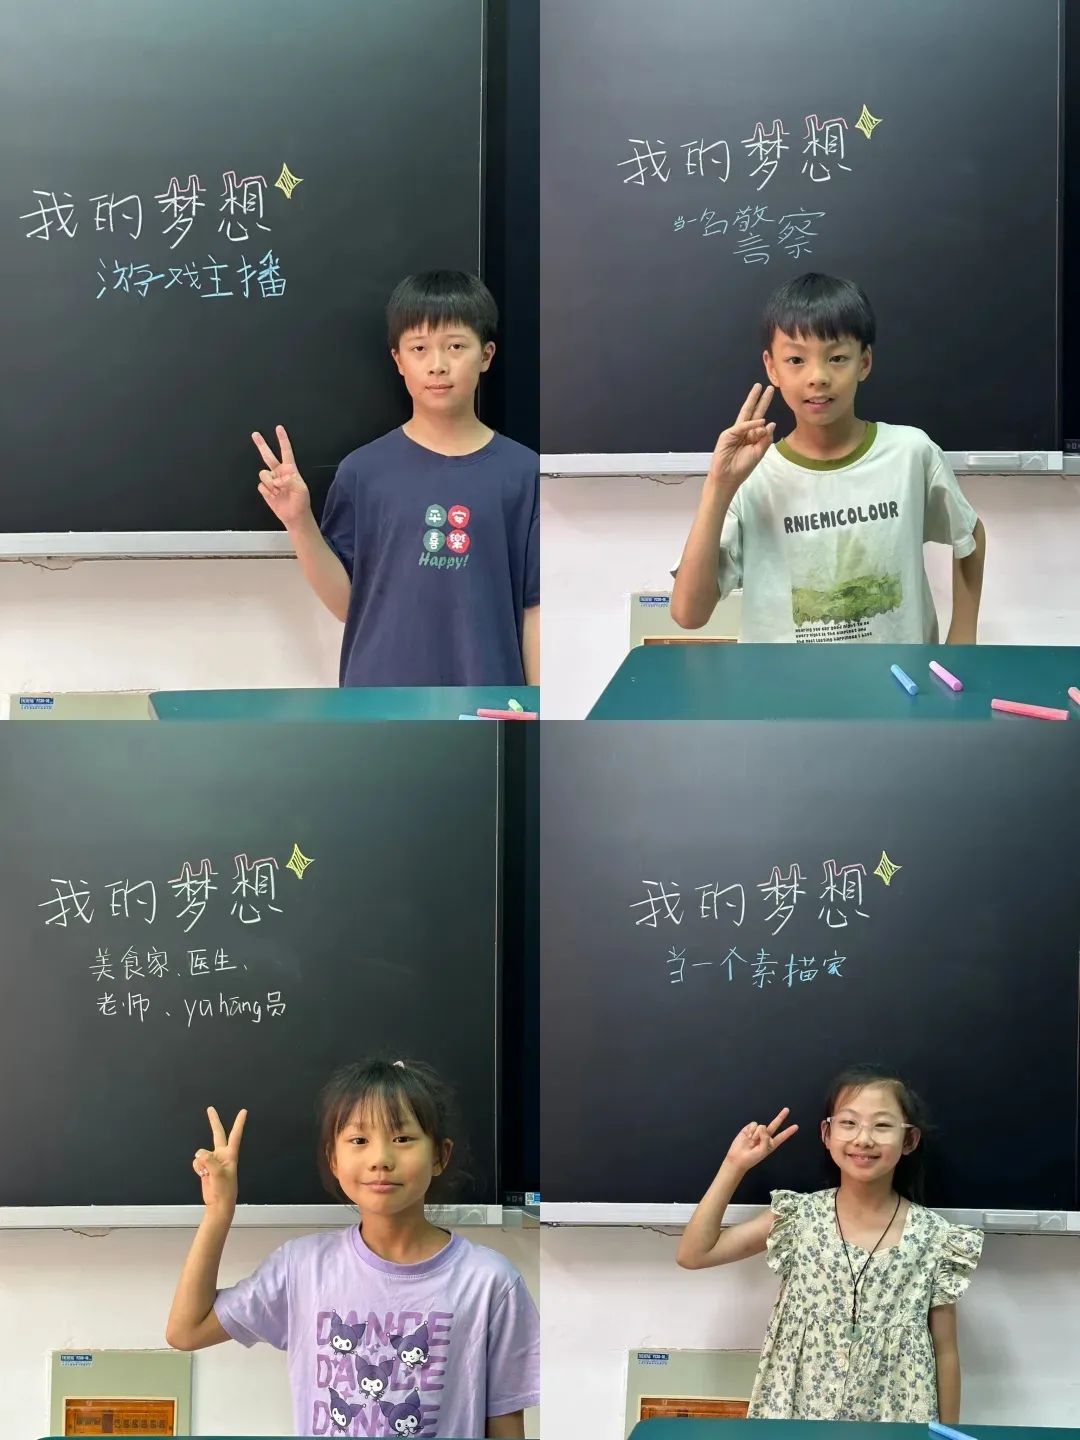 我的梦想
游戏主播
平安
喜樂
Happy!
我的梦想
当一名警察
RNIEMICOLOUR
我的梦想
美食家、医生、
老师、yǔ háng员
DANCE
DANCE
DANCE
我的梦想
当一个素描家